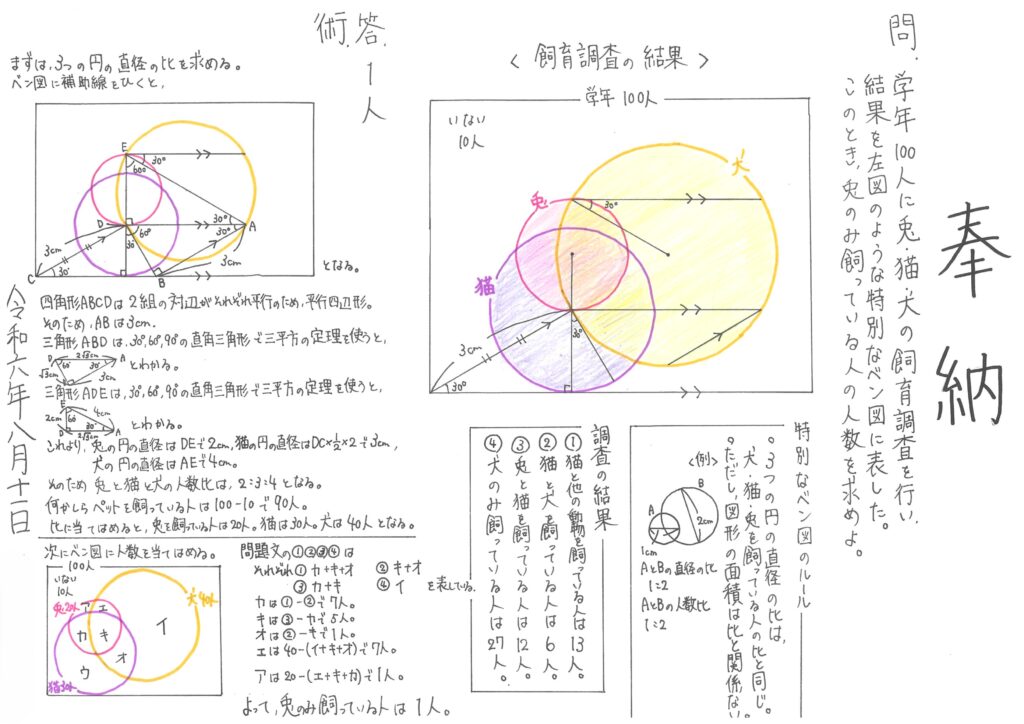 奉納
問.学年100人に兎・猫・犬の飼育調査を行い、
結果を左図のような特別なベン図に表した。
このとき、兎のみ飼っている人の人数を求めよ。
<飼育調査の結果>
学年100人
いない
10人
犬
兎
猫
30°
3cm
30°
30°
特別なベン図のルール
・3つの円の直径の比は、
犬・猫・兎を飼っている人の比と同じ。
・ただし、図形の面積は比と関係ない。
<例>
A
B
2cm
1cm
AとBの直径の比
1:2
AとBの人数比
1:2
調査の結果
①猫と他の動物を飼っている人は13人。
②猫と犬を飼っている人は6人。
③兎と猫を飼っている人は12人。
④犬のみ飼っている人は27人。
答.1人
術.
まずは、3つの円の直径の比を求める。
ベン図に補助線をひくと、
E
30°
60°
D
60°
30°
30°
A
30°
3cm
3cm
C
30°
B
となる。
四角形ABCDは2組の対辺がそれぞれ平行のため、平行四辺形。
そのため、ABは3cm.
三角形ABDは、30°,60°,90°の直角三角形で三平方の定理を使うと、
D
2√3cm
A
60°
30°
√3cm
3cm
とわかる。
三角形ADEは、30°,60°,90°の直角三角形で三平方の定理を使うと、
E
4cm
2cm
60
30°
D
2√3cm
A
とわかる。
これより、兎の円の直径はDEで2cm,猫の円の直径はDC×½×2で3cm,
犬の円の直径はAEで4cm。
そのため 兎と猫と犬の人数比は、2:3:4となる。
何かしらペットを飼っている人は100-10で90人。
比に当てはめると、兎を飼っている人は20人。猫は30人。犬は40人となる。
次にベン図に人数を当てはめる。
100人
いない
10人
兎20人
犬40人
猫30人
ア
エ
イ
カ
キ
オ
ウ
問題文の①②③④は
それぞれ① カ+キ+オ ② キ+オ
③ カ+キ ④ イ を表している。
カは①-②で7人。
キは③-カで5人。
オは②-キで1人。
エは40-(イ+キ+オ)で7人。
アは20-(エ+キ+カ)で1人。
よって、兎のみ飼っている人は1人。
令和六年八月十一日